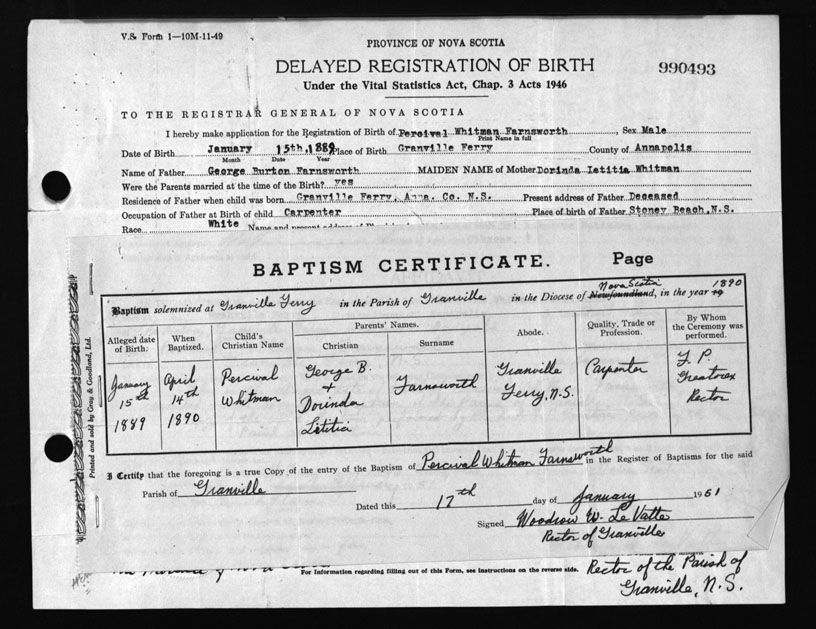 V.S. Form 1—10M-11-49
PROVINCE OF NOVA SCOTIA
DELAYED REGISTRATION OF BIRTH
990493
Under the Vital Statistics Act, Chap. 3 Acts 1946
TO THE REGISTRAR GENERAL OF NOVA SCOTIA
I hereby make application for the Registration of Birth of Percival Whitman Farnsworth, Sex Male
Print Name in full
Date of Birth January 15th, 1889 Place of Birth Granville Ferry County of Annapolis
Month Date Year
Name of Father George Burton Farnsworth MAIDEN NAME of Mother Dorinda Letitia Whitman
Were the Parents married at the time of the Birth? yes
Residence of Father when child was born Granville Ferry, Anna. Co. N.S. Present address of Father Deceased
Occupation of Father at Birth of child Carpenter Place of birth of Father Stoney Beach, N.S.
Race White Name and present address of
BAPTISM CERTIFICATE. Page
Nova Scotia 1890
Baptism solemnized at Granville Ferry in the Parish of Granville in the Diocese of Newfoundland, in the year 19
Alleged date of Birth.
When Baptized.
Child's Christian Name
Parents' Names.
Christian
Surname
Abode.
Quality, Trade or Profession.
By Whom the Ceremony was performed.
January 15th 1889
April 14th 1890
Percival Whitman
George B. + Dorinda Letitia
Farnsworth
Granville Ferry, N.S.
Carpenter
F. P. Greatorex Rector
Printed and sold by Gray & Goodland, Ltd.
I Certify that the foregoing is a true Copy of the entry of the Baptism of Percival Whitman Farnsworth in the Register of Baptisms for the said
Parish of Granville
Dated this 17th day of January 1951
Signed Woodrow W. LeVatte
Rector of Granville
For Information regarding filling out of this Form, see instructions on the reverse side.
Rector of the Parish of
Granville, N.S.